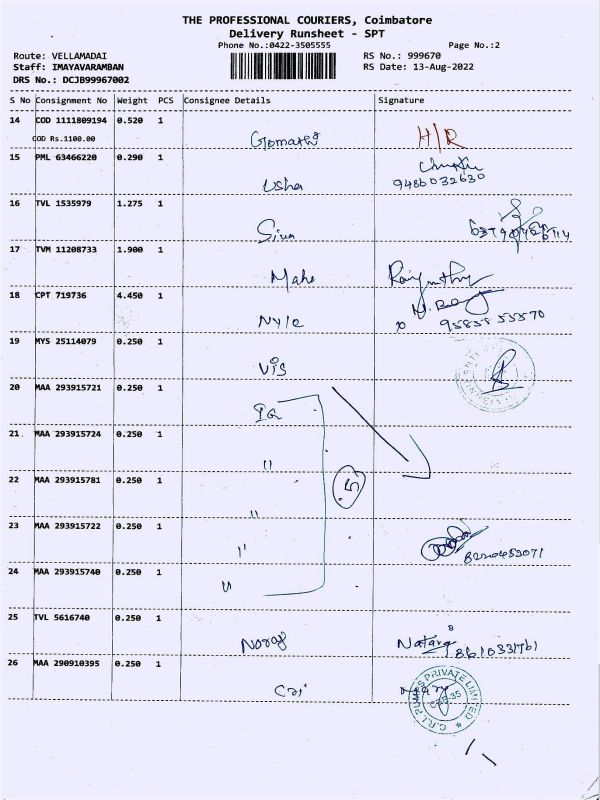 THE PROFESSIONAL COURIERS, Coimbatore
Delivery Runsheet - SPT
Phone No.:0422-3505555 Page No.:2
Route: VELLAMADAI RS No.: 999670
Staff: IMAYAVARAMBAN RS Date: 13-Aug-2022
DRS No.: DCJB99967002
S No Consignment No Weight PCS Consignee Details Signature
14 COD 1111809194 0.520 1
COD Rs.1100.00 Gomathi H/R
15 PML 63466220 0.290 1
Usha 9486032630
16 TVL 1535979 1.275 1
Siva
17 TVM 11208733 1.900 1
Mahe
18 CPT 719736 4.450 1
Nyle 95858 55570
19 MYS 25114079 0.250 1
Vis
20 MAA 293915721 0.250 1
IG
21 MAA 293915724 0.250 1
"
22 MAA 293915781 0.250 1
5
"
23 MAA 293915722 0.250 1
" 8220453071
24 MAA 293915740 0.250 1
"
25 TVL 5616740 0.250 1
Nataraj
26 MAA 290910395 0.250 1
Cri
C.R.I. PUMPS PRIVATE LIMITED
CBE-35